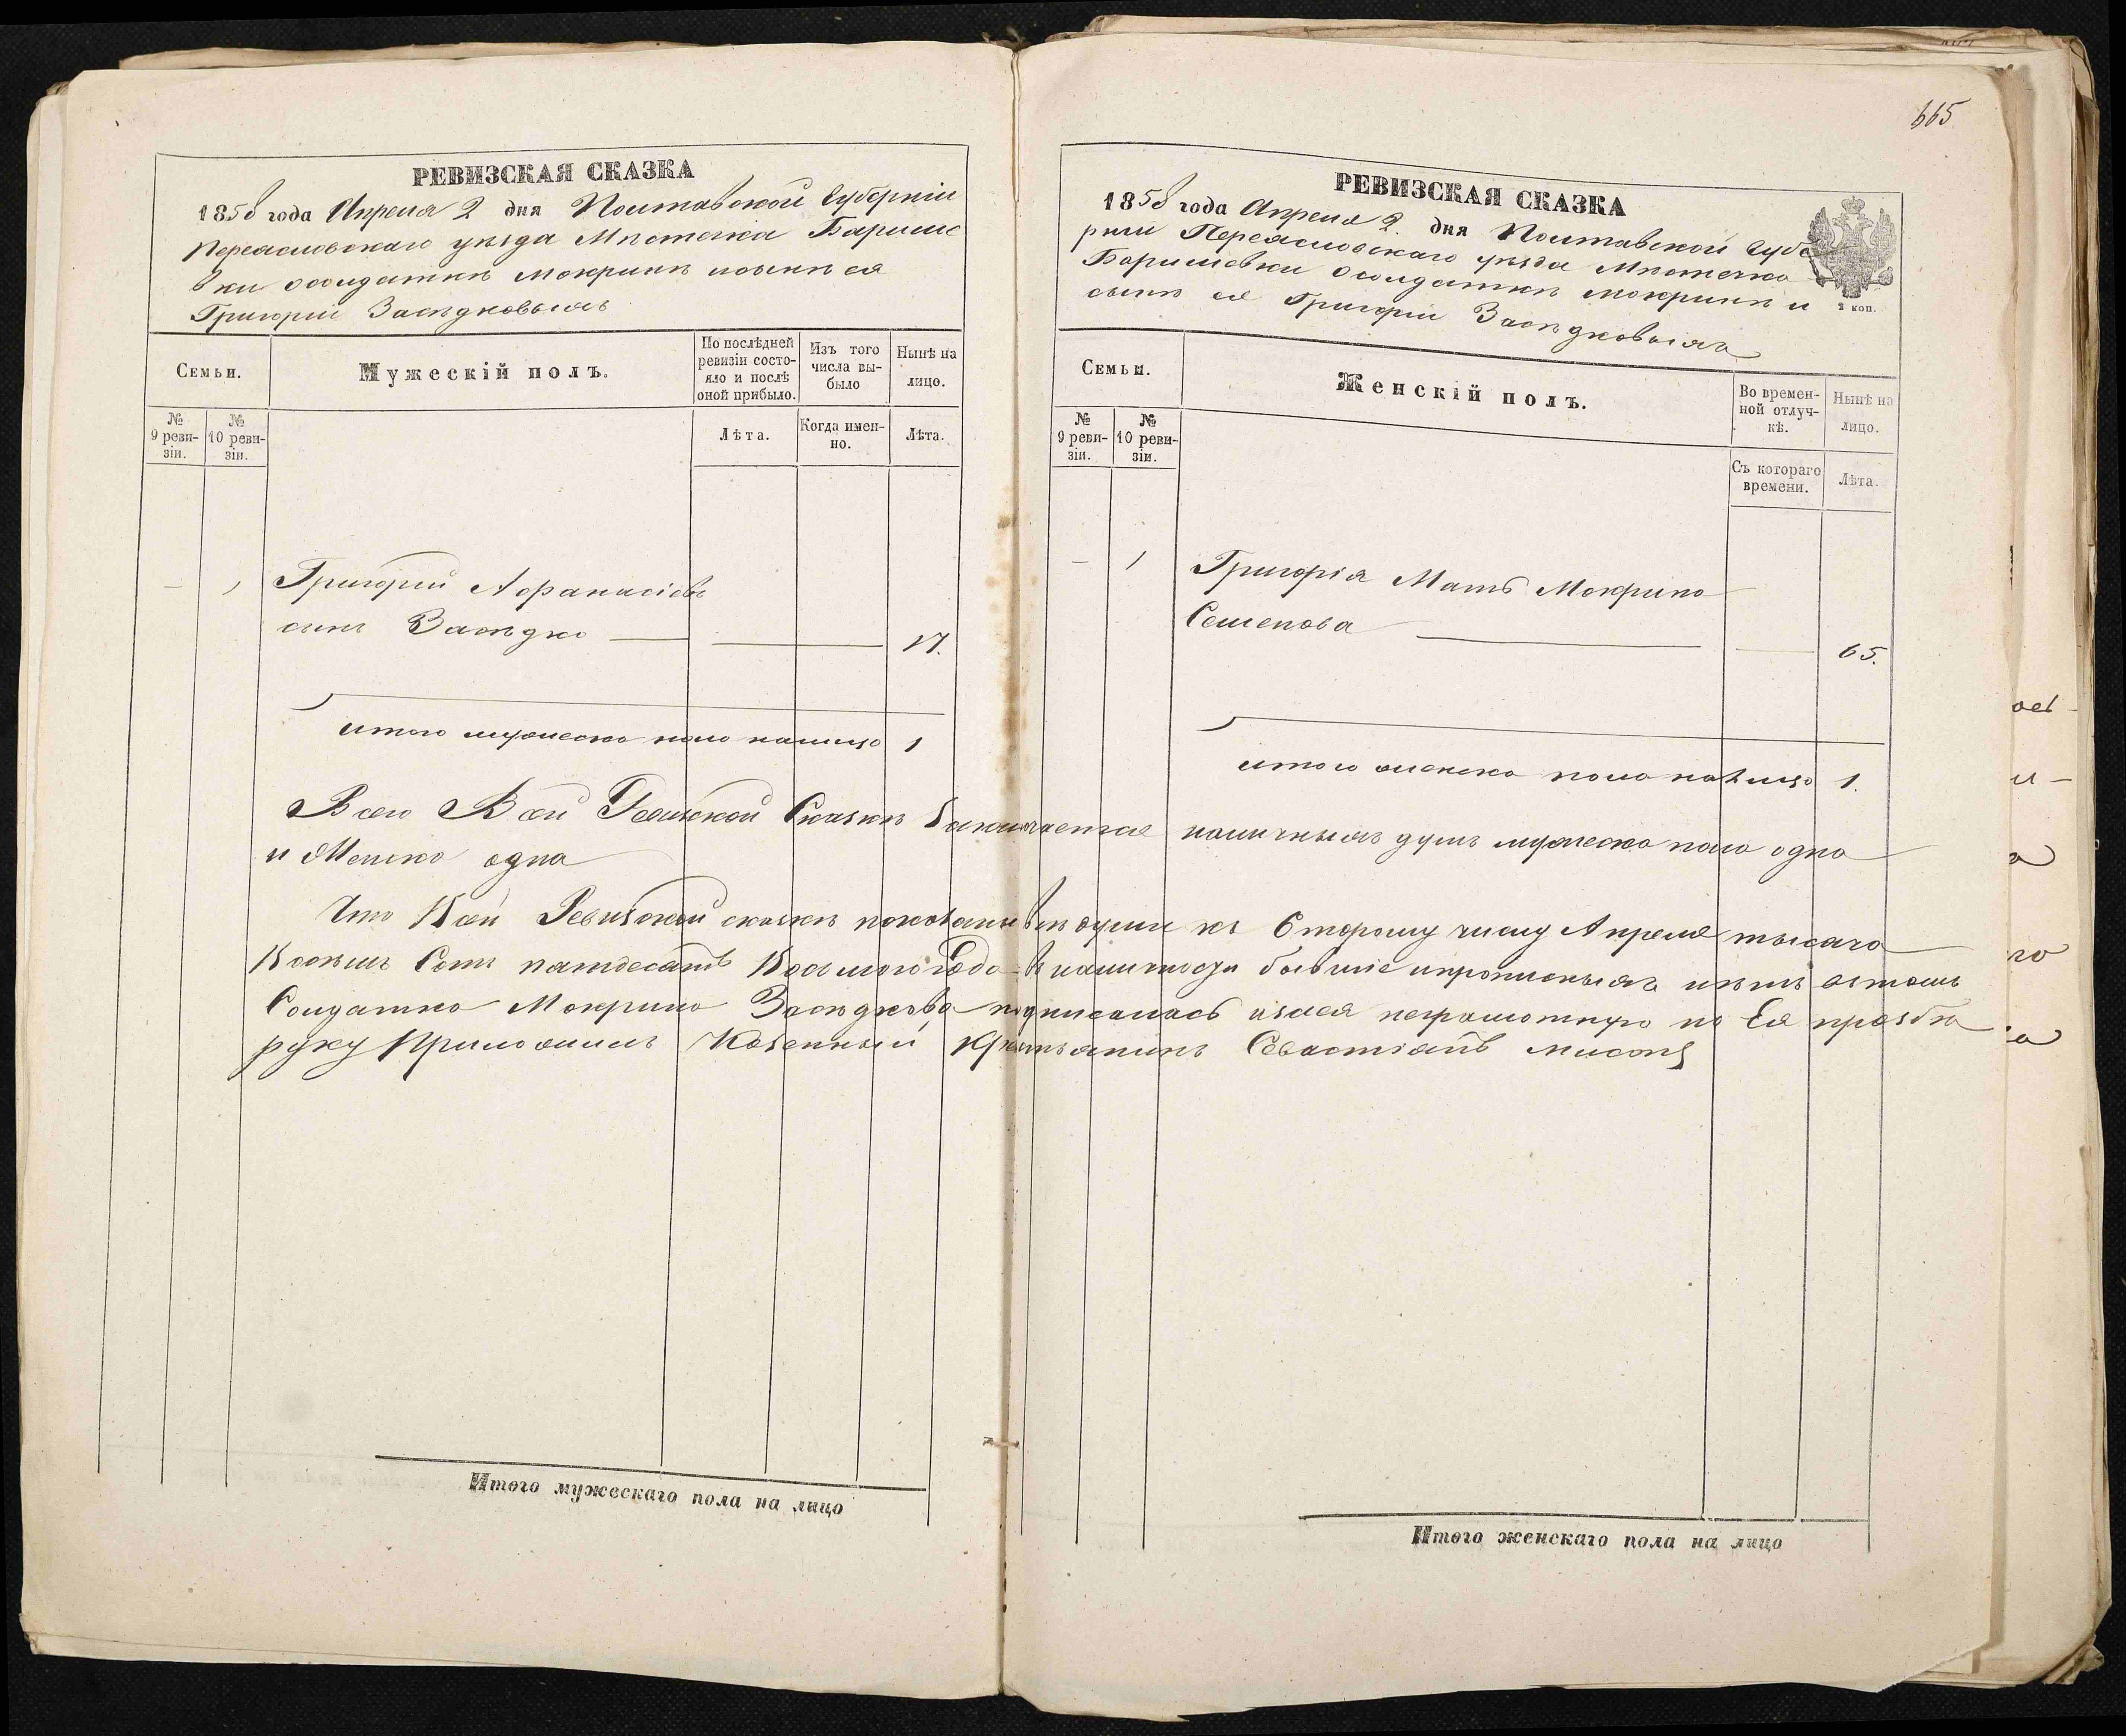 665
РЕВИЗСКАЯ СКАЗКА
1858 года Апреля 2 дня Полтавской Губерніи
Переясловскаго уѣзда Мѣстечка Барише
вки осолдаткѣ Мокринѣ исынѣ ея
Григоріи Засѣдковыхъ
Семьи.
Мужескій полъ.
По послѣдней ревизіи состояло и послѣ оной прибыло.
Изъ того числа выбыло
Нынѣ на лицо.
№ 9 ревизіи.
№ 10 ревизіи.
Лѣта.
Когда именно.
Лѣта.
— 1 Григорій Афанасіевъ
сынъ Засѣдко — — 17.
итого мужеска пола налицо 1
РЕВИЗСКАЯ СКАЗКА
1858 года Апреля 2. дня Полтавской Губе
рніи Переясловскаго уѣзда Мѣстечка
Баришевки осолдаткѣ Мокринѣ и
сынѣ ея Григоріи Засѣдковыхъ
2 коп.
Семьи.
Женскій полъ.
Во временной отлучкѣ.
Нынѣ на лицо.
№ 9 ревизіи.
№ 10 ревизіи.
Съ котораго времени.
Лѣта.
— 1 Григорія Мать Мокрина
Семенова — — 65.
итого женска пола налицо 1.
Всего Всей Ревизской Сказкѣ Заключается наличныхъ душъ мужеска пола одна
и Женска одна
Что Всей Ревизской сказкѣ показаны всѣ души къ Второму числу Апреля тысяча
Восемь Сотъ пятдесятъ Восмого Года в наличности бывшіе инрописныхъ нѣтъ втомъ
Солдатка Мокрина Засѣдкова подписалась азаея неграмотную по Ея прозбѣ
руку Приложилъ Казенный Крестьянинъ Севастіянъ
Итого мужескаго пола на лицо
Итого женскаго пола на лицо